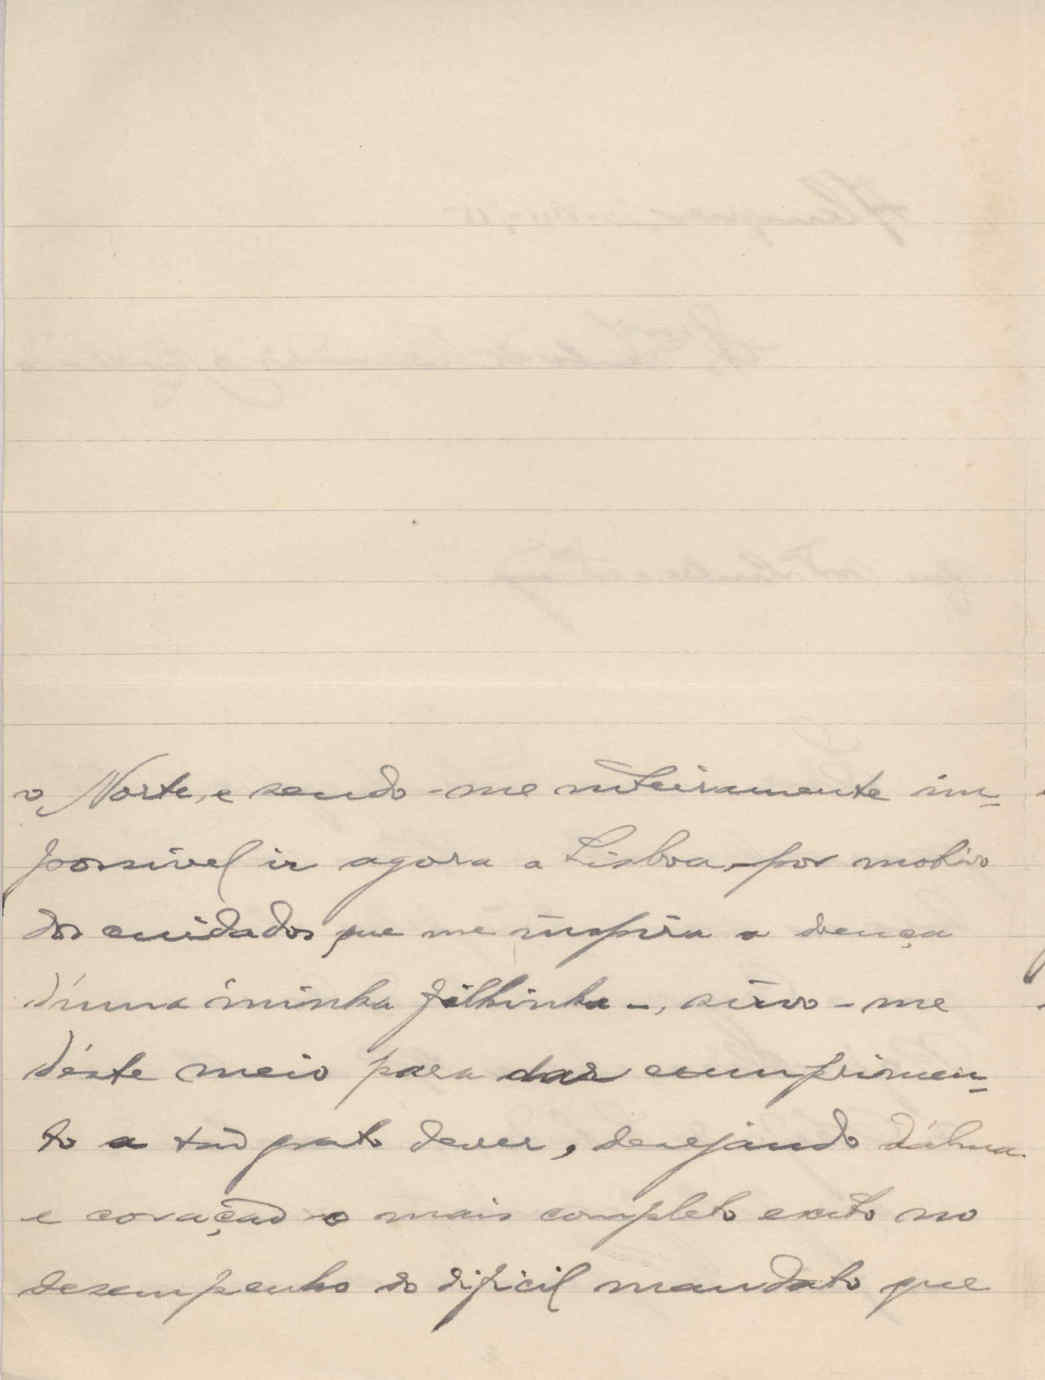 o Norte, e sendo-me inteiramente im-
possivel ir agora a Lisboa por motivo
dos cuidados que me inspira a doença
d'uma minha filhinha -, sirvo-me
d'éste meio para dar cumprimen-
to a tão grato dever, desejando d'alma
e coração o mais completo exito no
desempenho do dificil mandato que